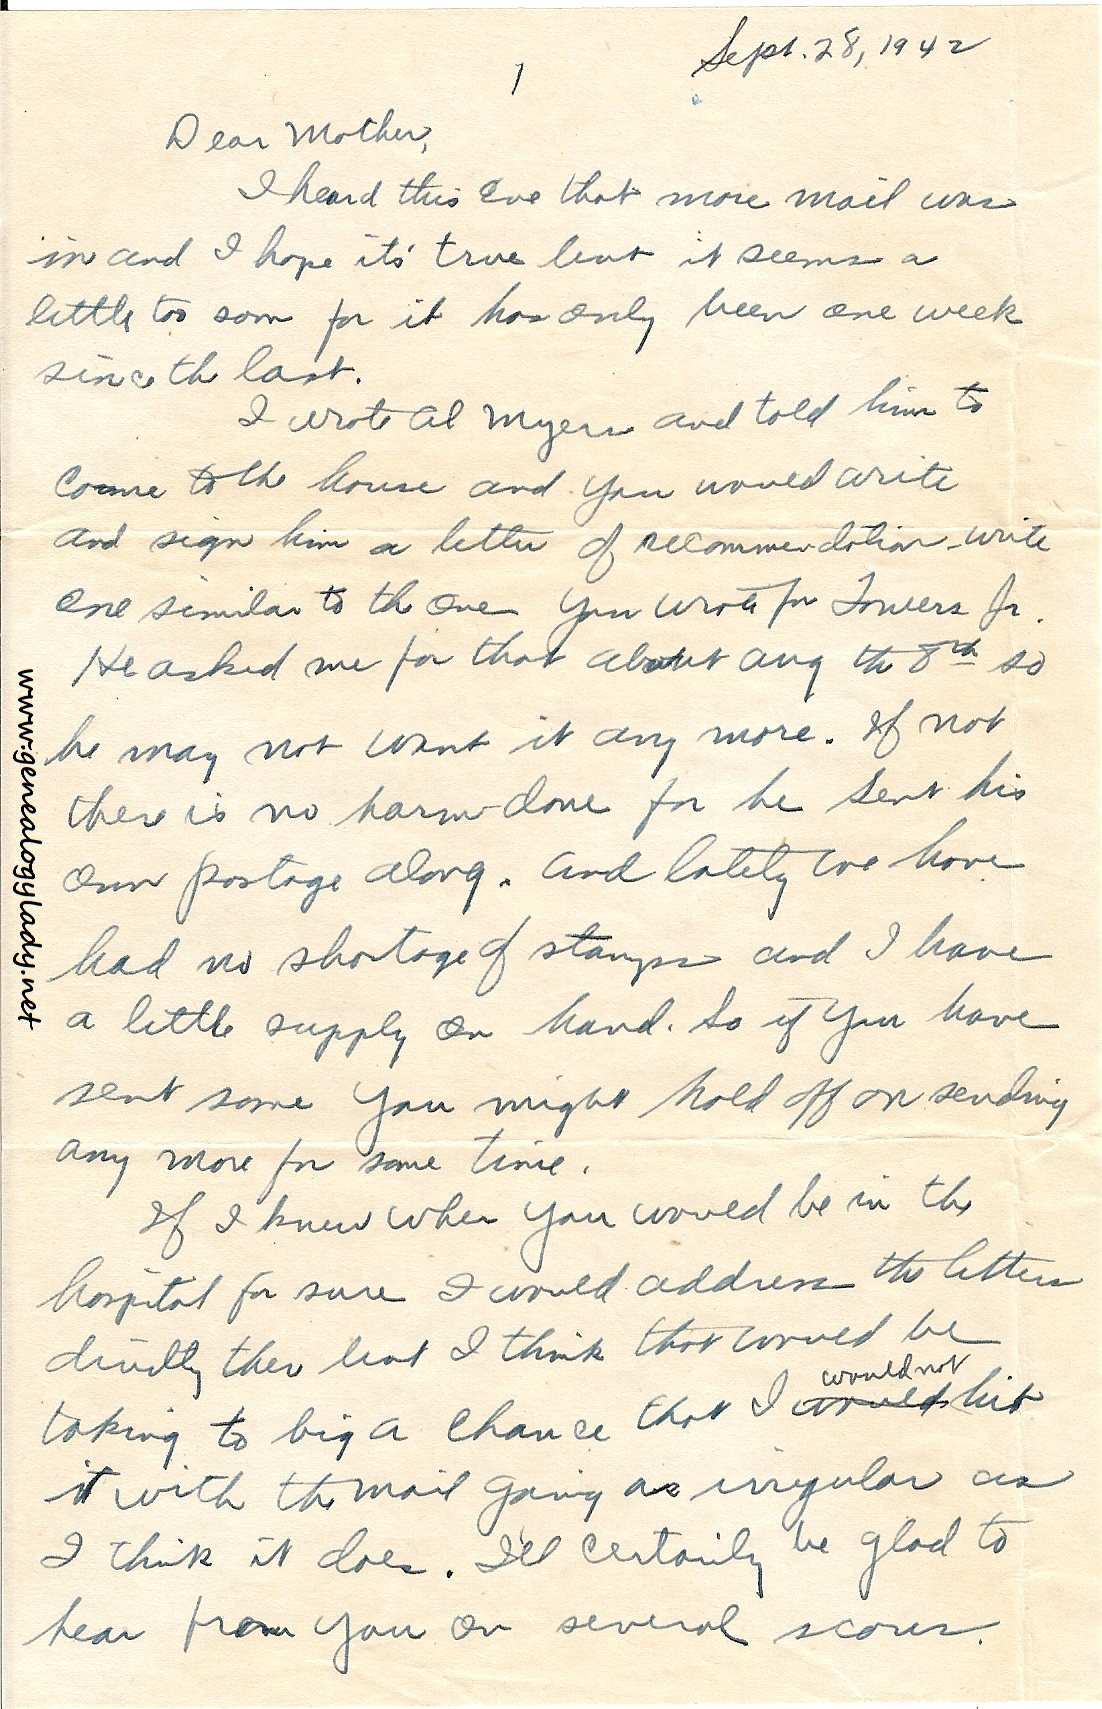 Sept. 28, 1942
1
Dear Mother,
I heard this eve that more mail was
in and I hope its' true but it seems a
little too soon for it has only been one week
since the last.
I wrote Al Myers and told him to
come to the house and you would write
and sign him a letter of recommendation – write
one similar to the one you wrote for Towers Jr.
He asked me for that about Aug the 8th so
he may not want it any more. If not
there is no harm done for he sent his
own postage along. And lately we have
had no shortage of stamps and I have
a little supply on hand. So if you have
sent some you might hold off on sending
any more for some time.
If I knew when you would be in the
hospital for sure I would address the letters
directly there but I think that would be
taking to big a chance that I would not hit
it with the mail going as irregular as
I think it does. I'll certainly be glad to
hear from you on several scores.
www.genealogylady.net